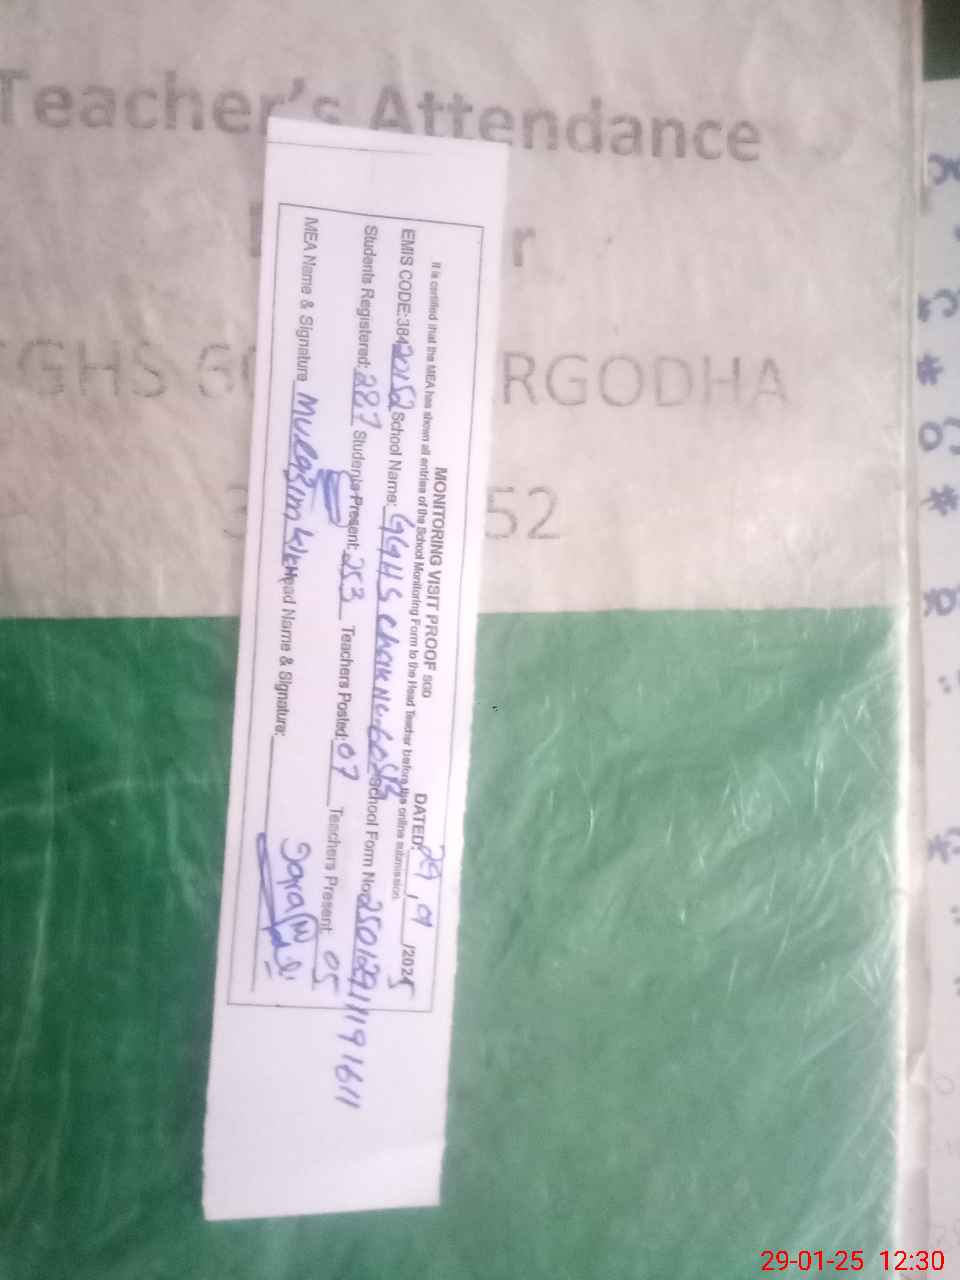 Teacher's Attendance
GHS 60 RGODHA
52
MONITORING VISIT PROOF SGD DATED: 29 / 01 /2025
It is certified that the MEA has shown all entries of the School Monitoring Form to the Head Teacher before the online submission
EMIS CODE:38420152 School Name: GGHS Chak No. 60 SB School Form No
Students Registered: 287 Students Present: 253 Teachers Posted: 07 Teachers Present: 05
MEA Name & Signature Head Name & Signature:
29-01-25 12:30